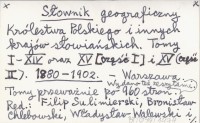 Słownik geograficzny
Królestwa Polskiego i innych
krajów słowiańskich. Tomy
I-XIV oraz XV (część I) i XV (część
II). 1880-1902. Warszawa
Tomy przeważnie po 960 stron.
Red: Filip Sulimierski, Bronisław
Chlebowski, Władysław Walewski i